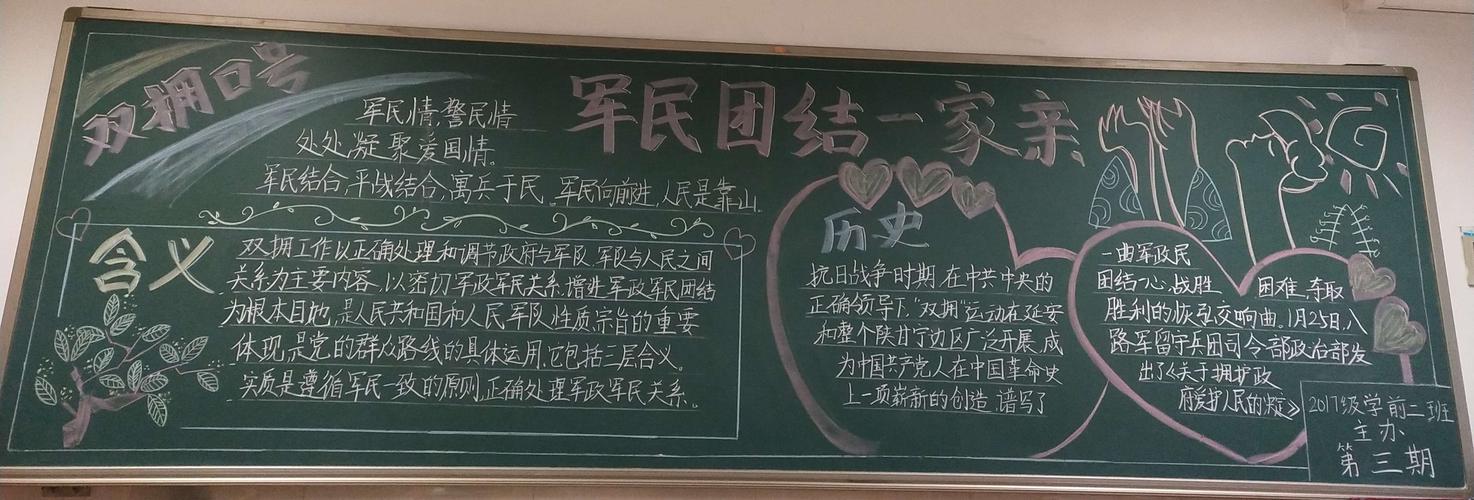 双拥口号
军民情,警民情
处处凝聚爱国情。
军民结合,平战结合,寓兵于民,军民向前进,人民是靠山.
军民团结一家亲
含义
双拥工作以正确处理和调节政府与军队,军队与人民之间
关系为主要内容,以密切军政军民关系,增进军政军民团结
为根本目地,是人民共和国和人民军队性质,宗旨的重要
体现,是党的群众路线的具体运用,它包括三层含义。
实质是遵循军民一致的原则,正确处理军政军民关系。
历史
抗日战争时期,在中共中央的
正确领导下,"双拥"运动在延安
和整个陕甘宁边区广泛开展,成
为中国共产党人在中国革命史
上一项崭新的创造,谱写了
一曲军政民
团结一心,战胜 困难,夺取
胜利的恢弘交响曲。1月25日,八
路军留守兵团司令部政治部发
出了《关于拥护政
府爱护人民的决定》
2017级学前二班
主办
第三期